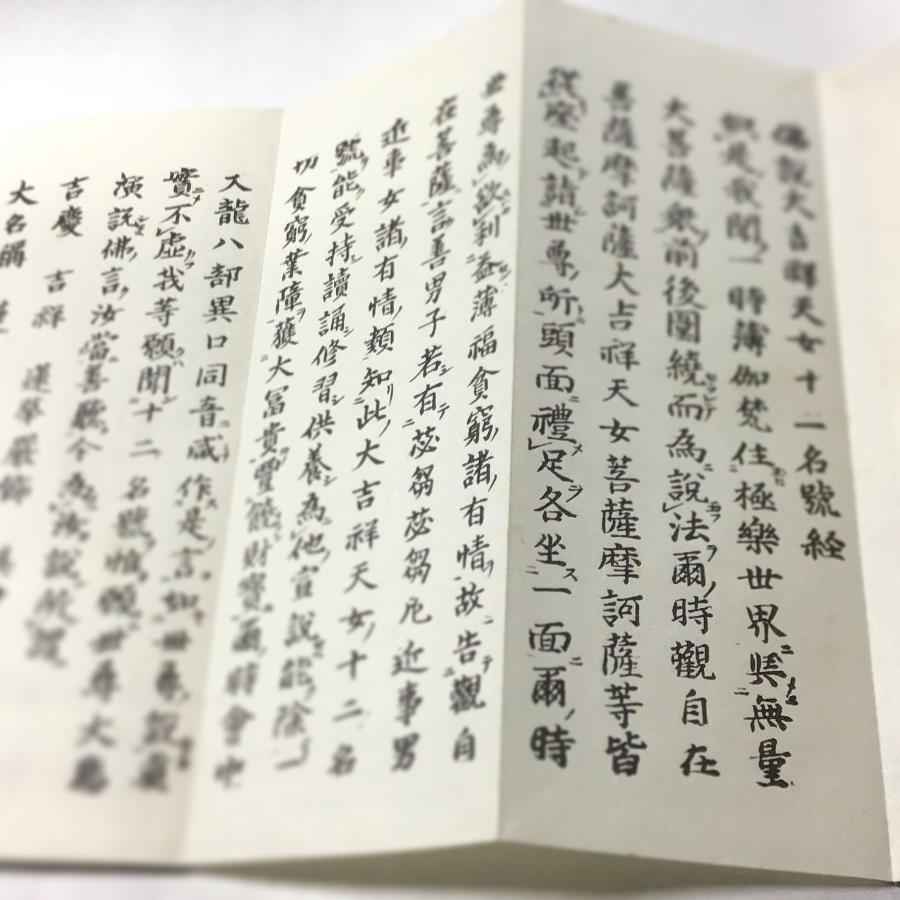 佛說大吉祥天女十二名號經
如是我聞一時薄伽梵住極樂世界與無量
大菩薩衆前後圍繞而為說法爾時觀自在
菩薩摩訶薩大吉祥天女菩薩摩訶薩等皆
從座起詣世尊所頭面禮足各坐一面爾時
世尊為欲利益薄福貧窮諸有情故告觀自
在菩薩言善男子若有苾芻苾芻尼近事男
近事女諸有情類知此大吉祥天女十二名
號能受持讀誦修習供養為他宣說能除一
切貧窮業障獲大富貴豐饒財寳爾時會中
天龍八部異口同音咸作是言如世尊說真
實不虛我等願聞十二名號惟願世尊大悲
演說佛言汝當善聽今為汝說所謂
吉慶 吉祥 蓮華 嚴飾
大名稱